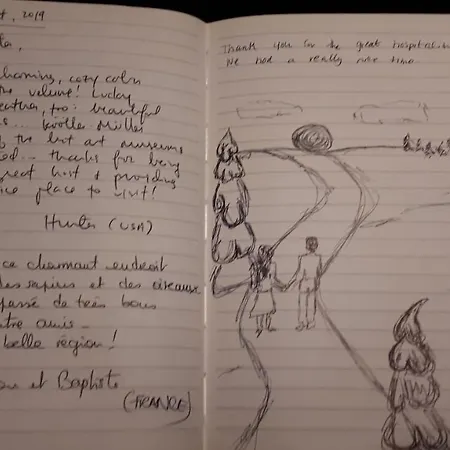 , 2019
charming, cozy cabin
the veluwe! Lucky
weather, too: beautiful
Kröller Müller
of the best art museums
thanks for being
great host & providing
nice place to visit!
Hunter (USA)
ce charmant endroit
des sapins et des oiseaux
passé de très bons
entre amis -
belle région!
et Baptiste
(FRANCE)
Thank you for the great hospitali
We had a really nice time.